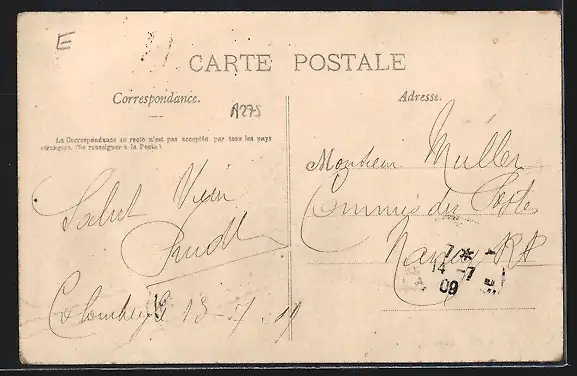 E
CARTE POSTALE
Correspondance.
Adresse.
A275
La Correspondance au recto n'est pas acceptée par tous les pays
étrangers. (Se renseigner à la Poste.)
Monsieur Muller
Commis des Postes
Nancy RP
Salut
7 *
14 -7
09